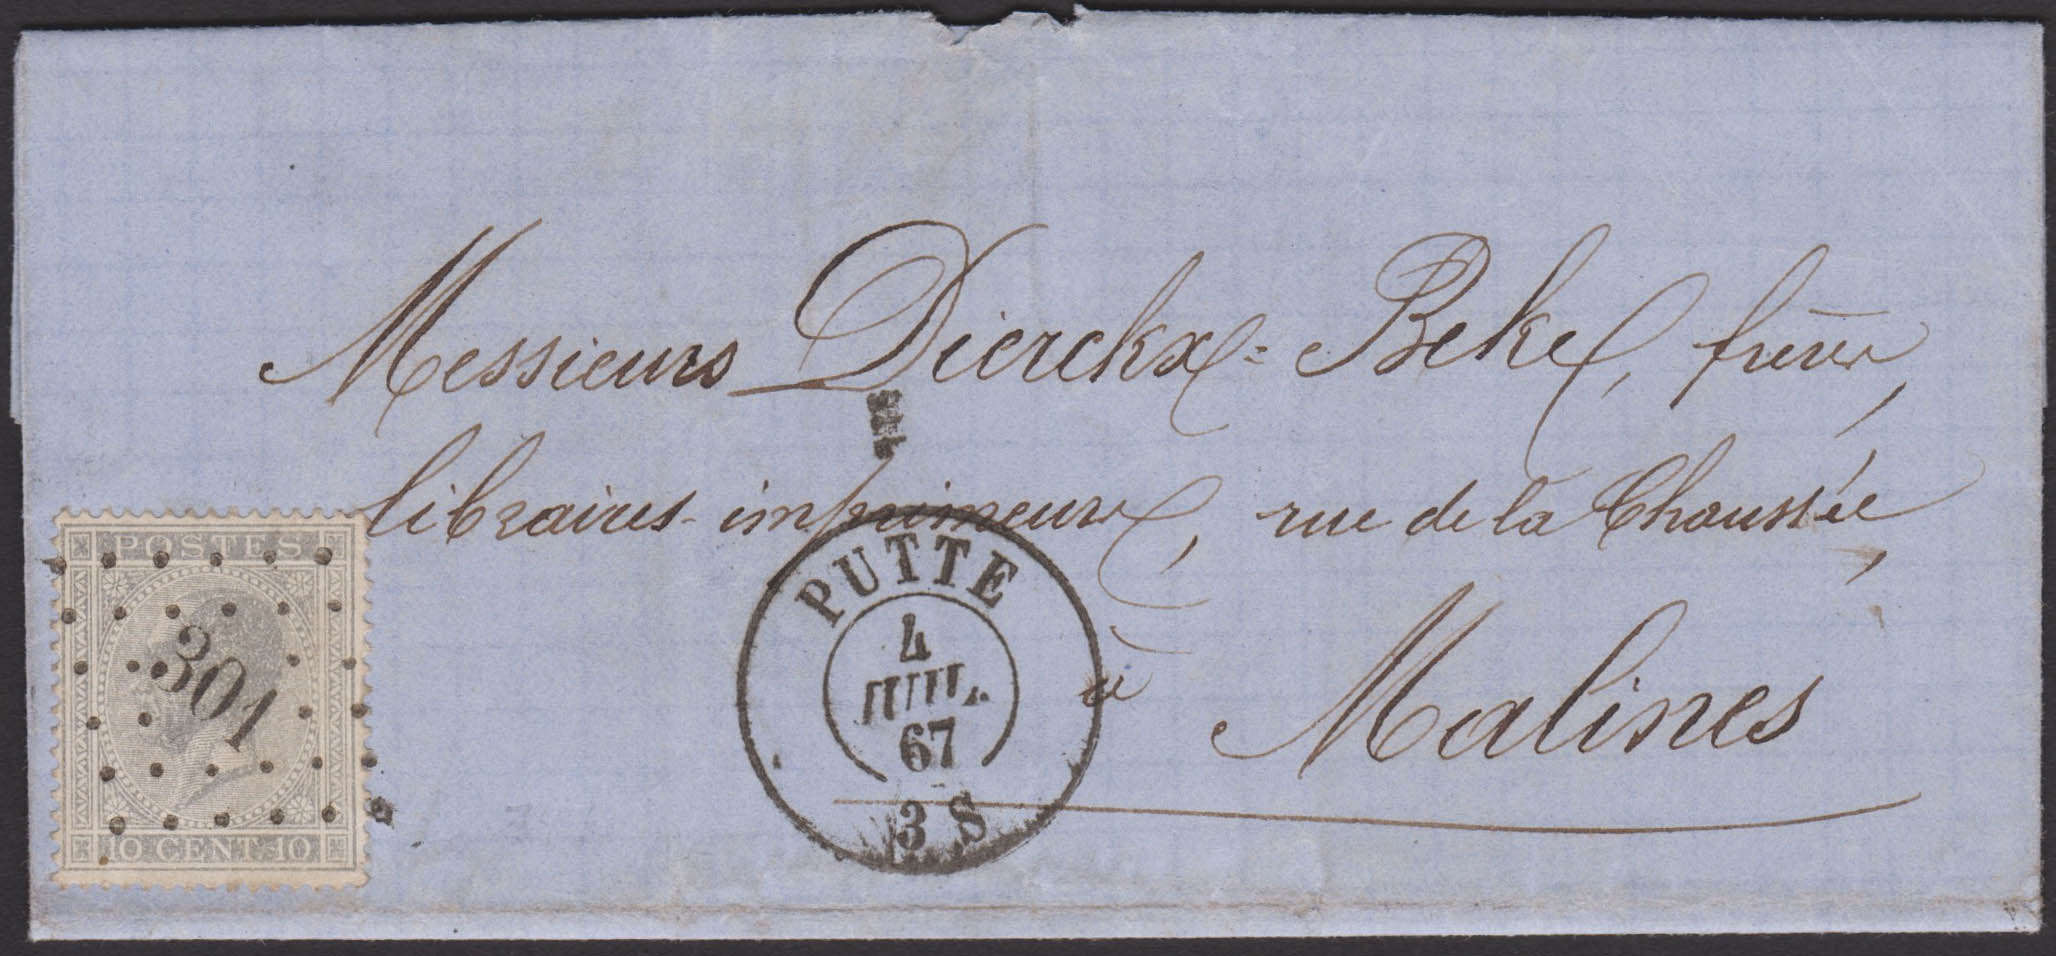 Messieurs Dierckx-Beke, frères,
libraires-imprimeurs, rue de la Chaussée,
à
Malines
POSTES
301
10 CENT. 10
PUTTE
4
JUIL.
67
3 S